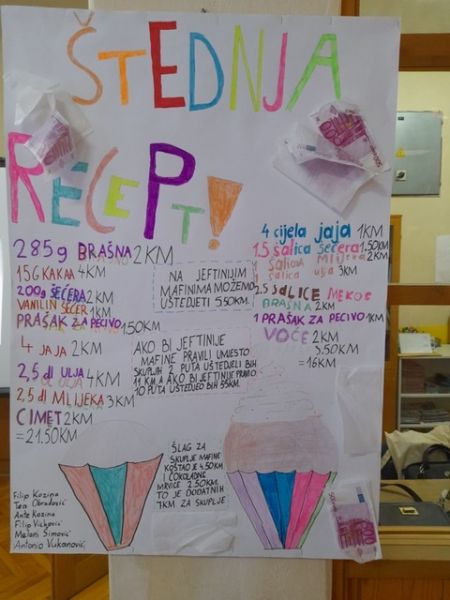 ŠTEDNJA
RECEPT!
285g BRAŠNA 2KM
15G KAKAA 4KM
200g ŠEĆERA 2KM
VANILIN SEĆER 1KM
PRAŠAK ZA PECIVO 1.50KM
4 JAJA 2KM
2,5 dl ULJA 4KM
2,5 dl MLIJEKA 3KM
CIMET 2KM
= 21.50KM
NA JEFTINIJIM
MAFINIMA MOŽEMO
UŠTEDJETI 5.50KM.
AKO BI JEFTINIJE
MAFINE PRAVILI UMJESTO
SKUPLJIH 2 PUTA UŠTEDJELI BIH
11 KM A AKO BI JEFTINIJE PRAVILI
10 PUTA UŠTEDJELI BIH 55KM.
4 cijela jaja 1KM
1.5 šalica šećera 1.50KM
šalica mlijeka 2KM
šalica ulja 3KM
2.5 šalice MEKOG
BRAŠNA 2KM
1 PRAŠAK ZA PECIVO 1KM
VOĆE 2KM
5.50KM
=16KM
ŠLAG ZA
SKUPLJE MAFINE
KOŠTAO JE 4.50KM
I ČOKOLADNE
MRVICE 2.50KM.
TO JE DODATNIH
7KM ZA SKUPLJE
Filip Kozina
Tea Obradović
Ante Kozina
Filip Vidović
Melani Šimović
Antonio Vukanović